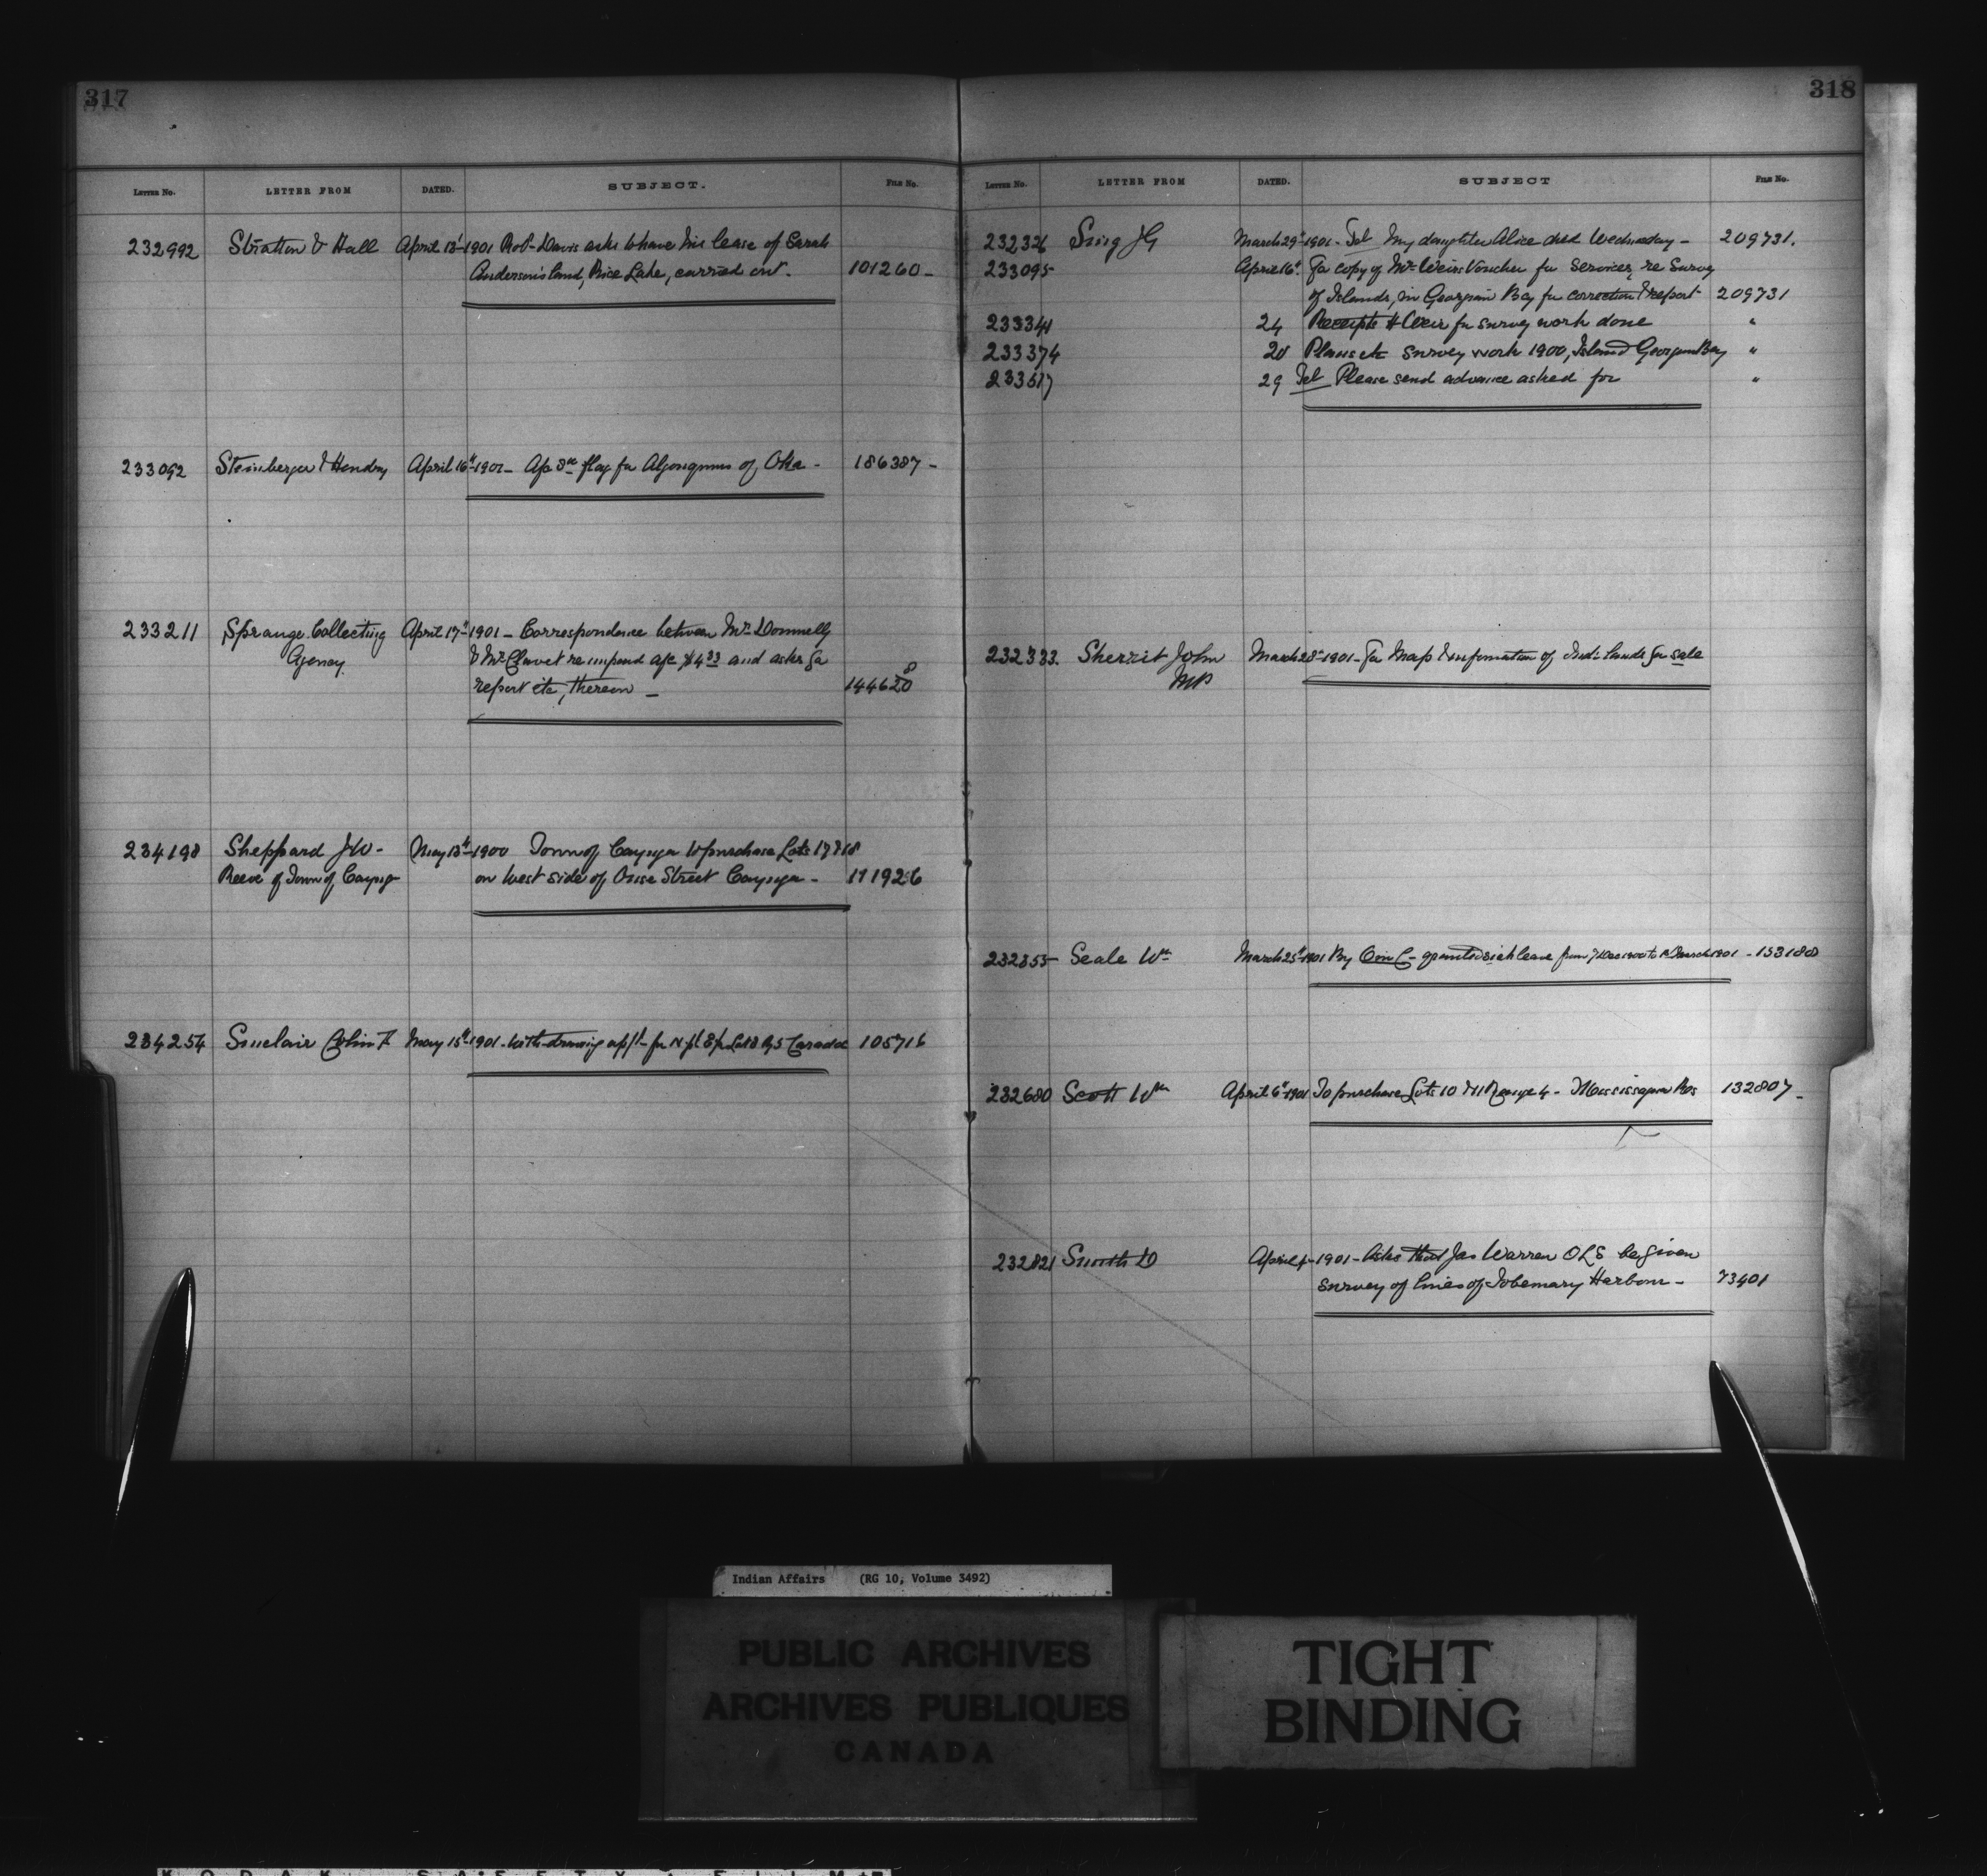 317
LETTER No. LETTER FROM DATED. SUBJECT. FILE No.
232992 Stratton & Hall April 13-1901 Robt Davis asks to have his lease of Sarah
Anderson's land, Rice Lake, carried out. 101260-
233092 Steinberger & Hendry April 16th-1901- A/c flag for Algonquins of Oka - 186387-
233211 Sprange Collecting April 17th-1901- Correspondence between Mr Donnelly
Agency. & Mr Clavet re unpaid a/c $4.33 and asks for
report etc, thereon - 144620
234198 Sheppard J W - May 13th-1900 Town of Cayuga to purchase Lots 17 & 18
Reeve of Town of Cayuga on West side of Ouse Street Cayuga - 171926
234254 Sinclair Colin F May 15th-1901- Withdrawing appl- for N pt Lot 8 R 5 Caradoc 105716
318
LETTER No. LETTER FROM DATED. SUBJECT FILE No.
232326 Sing J G March 29th-1901- Tel My daughter Alice died Wednesday - 209731.
233095 April 16th. For copy of Mr Weirs Voucher for services, re Survey
of Islands, in Georgian Bay for correction & report 209731
233341 24 Receipts H Weir for survey work done "
233374 20 Plans etc survey work 1900, Island Georgian Bay "
233517 29 Tel Please send advance asked for "
232333. Sherrit John March 28th-1901- For Map & information of Indn lands for sale
MP
232355- Seale Wm March 25th-1901 By O in C - granted sick leave from 7 Dec 1900 to March 1901 - 153180
232680 Scott Wm April 6th-1901 To purchase Lots 10 & 11 Range 4 - Mississagua Res 132807-
232821 Smith D April 4-1901- Asks that Jas Warren OLS be given
survey of lines of Tobermary Harbour - 73401
Indian Affairs (RG 10, Volume 3492)
PUBLIC ARCHIVES
ARCHIVES PUBLIQUES
CANADA
TIGHT
BINDING